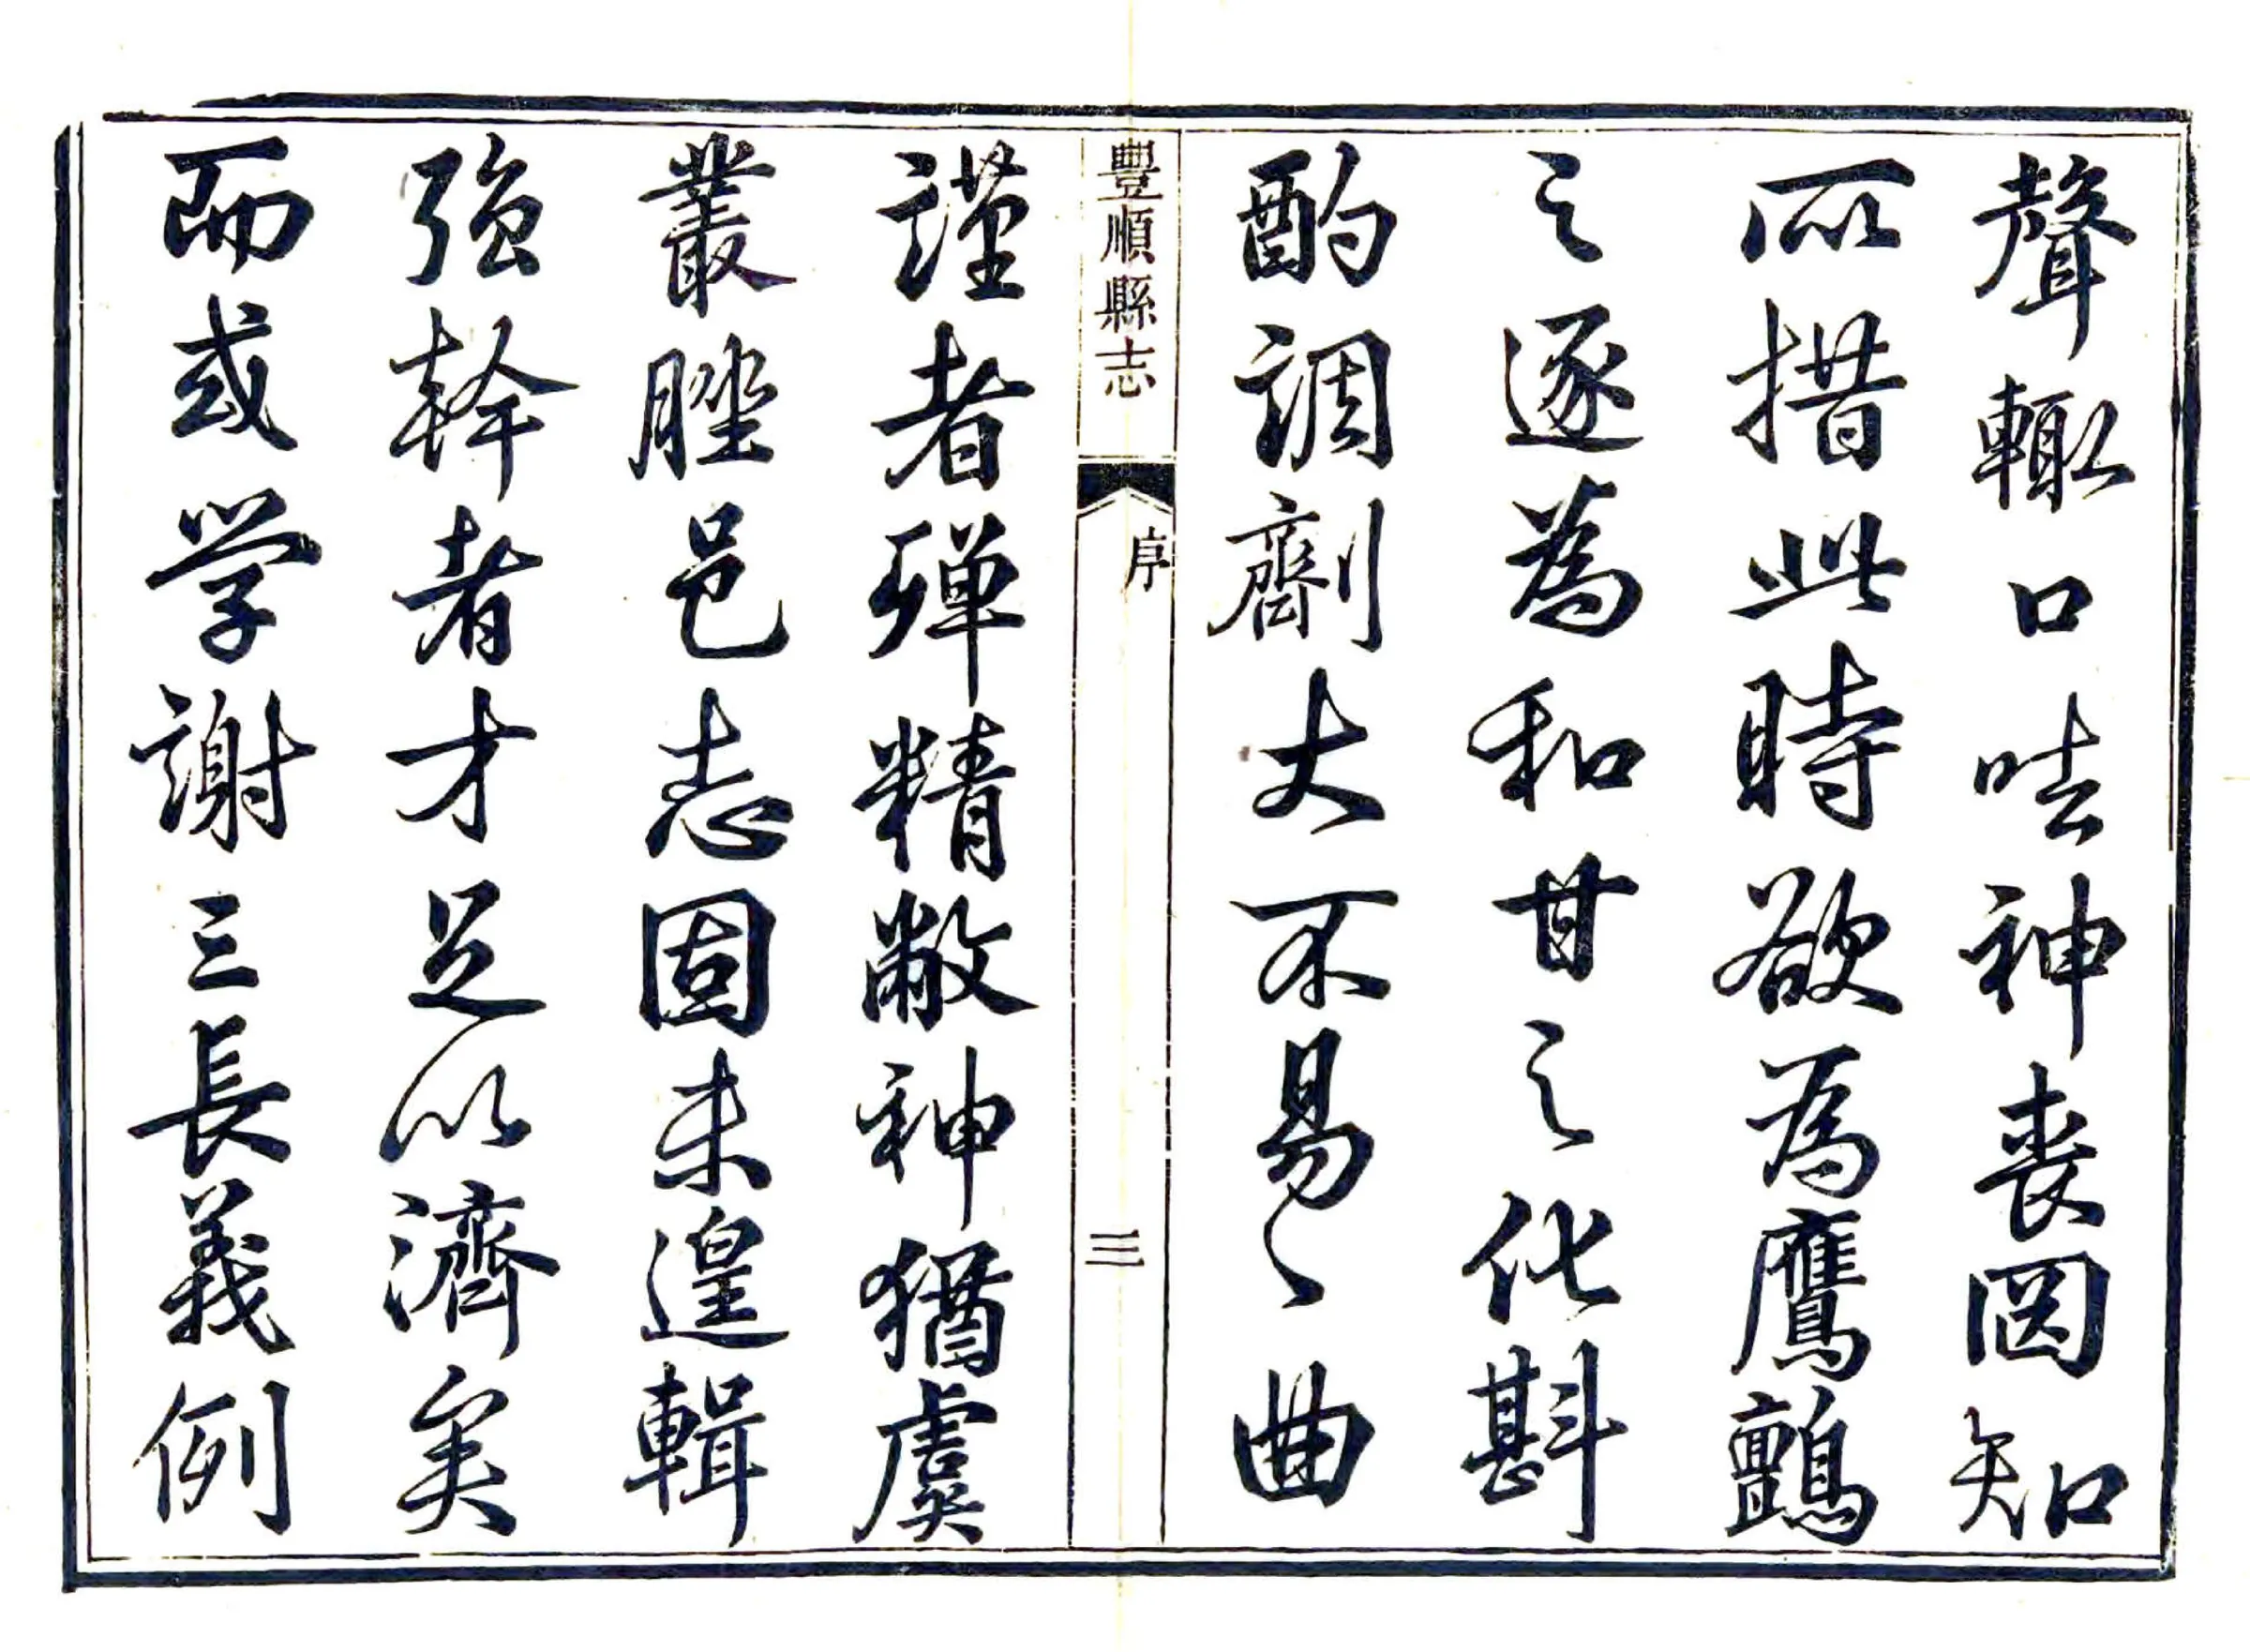 聲輙口呿神喪罔知
所措此時欲為鷹鸇
之逐為和甘之化斟
酌調劑大不易〻曲
豐順縣志
序
三
謹者殫精敝神猶虞
叢脞邑志固未遑輯
強幹者才足以濟矣
而或学謝三長義例